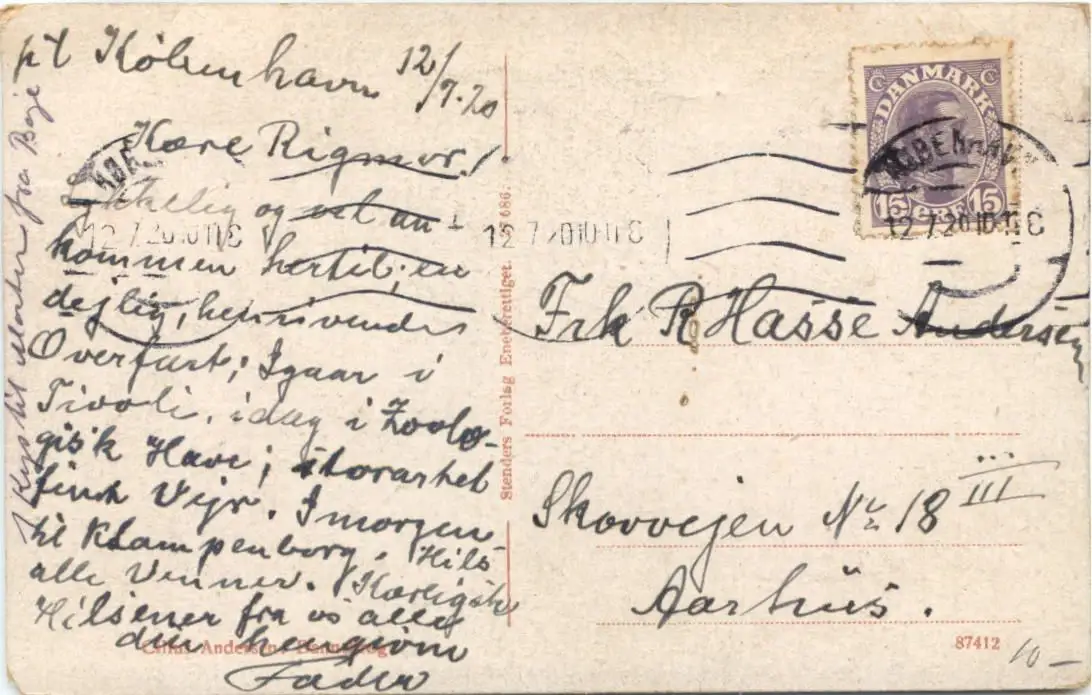 p/t København 12/7.20
Kære Rigmor!
Lykkelig og vel an-
kommen hertil; en
dejlig, henrivende
Overfart; Igaar i
Tivoli, idag i Zoolo-
gisk Have; storartet
fint Vejr. Imorgen
til Klampenborg. Hils
alle Venner. Kærligste
Hilsener fra os alle
din hengivne
Fader
1 Kys til Moster fra Boje
Stenders Forlag Eneberettiget. 686.
DANMARK
15 ØRE 15
KØBENHAVN
12.7.20 10-11 C
12.7.20 10-11 C
12.7.20 10-11 C
Frk R Hasse Andersen
Skovvejen No 18 III
Aarhus.
Andersen
87412
10-